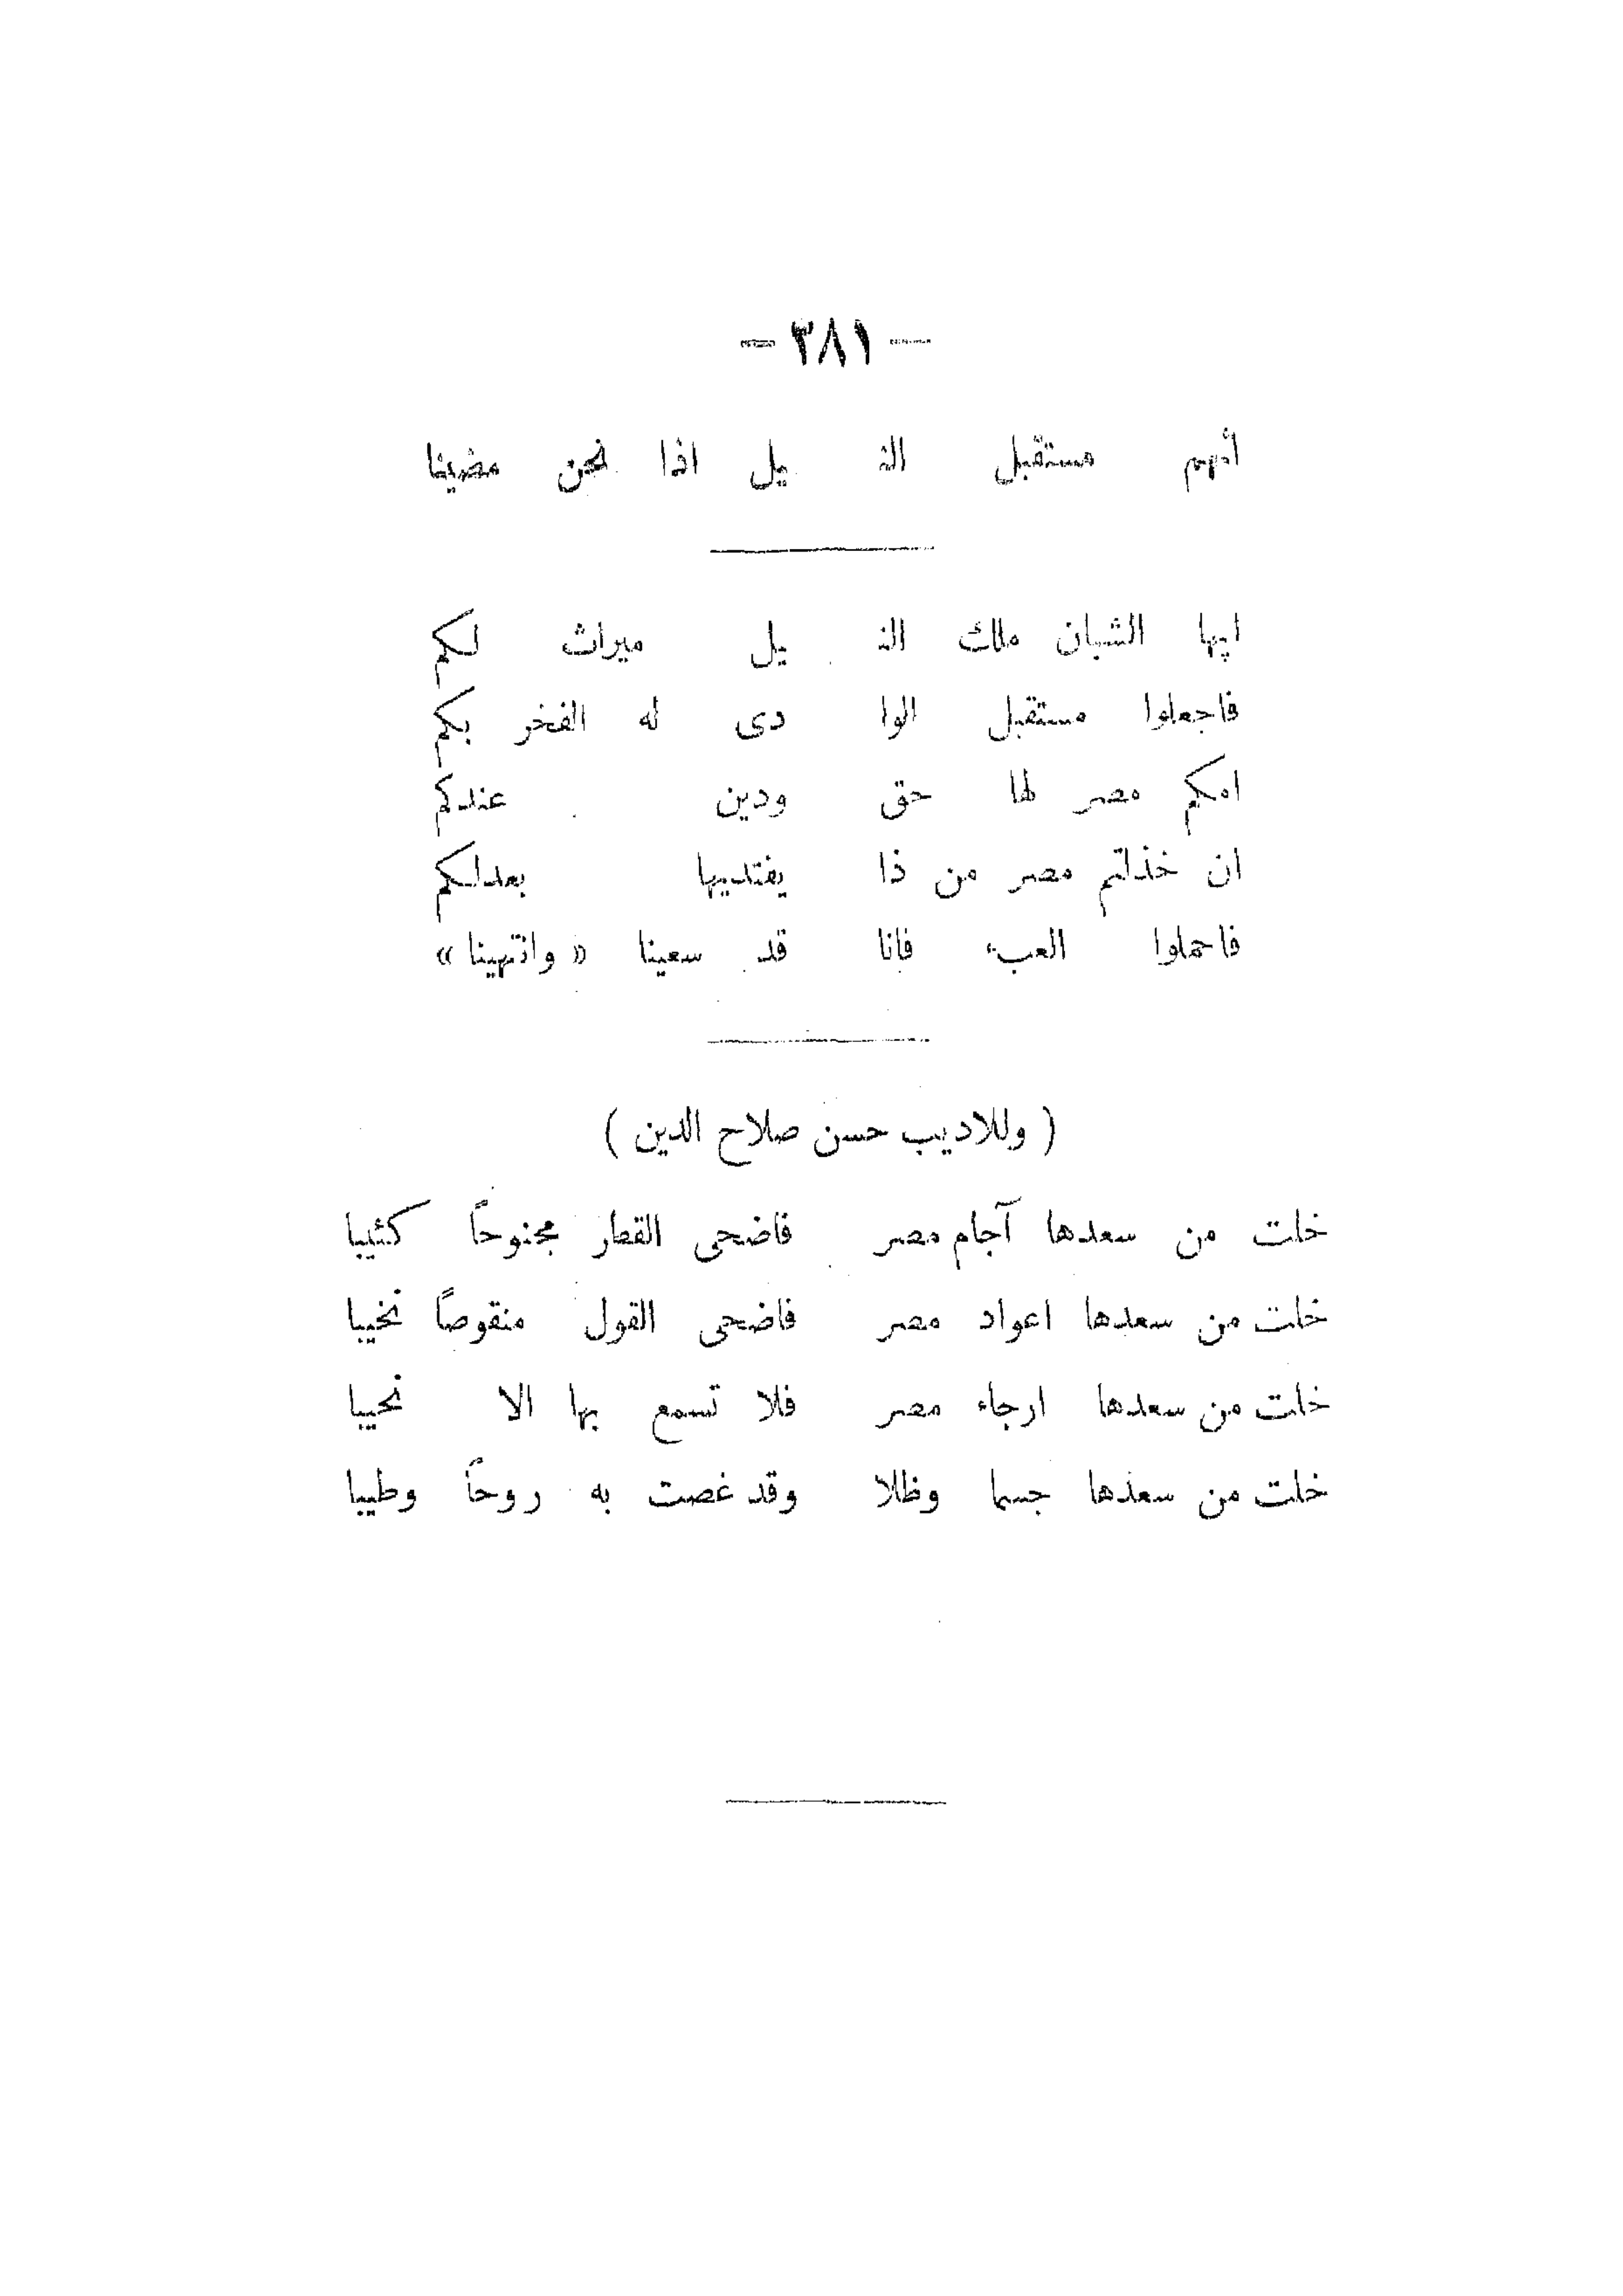 — ٣٨١ —
أنهم مستقبل الن يل اذا نحن مضينا
ايها الشبان ملك الن يل ميراث لكم
فاجعلوا مستقبل الوا دى له الفخر بكم
امكم مصر لها حق ودين عندكم
ان خذلتم مصر من ذا يفتديها بعدلكم
فاحملوا العبء فانا قد سعينا « وانتهينا »
( وللاديب حسن صلاح الدين )
خلت من سعدها آجام مصر فاضحى القطار مجنوحاً كئيبا
خلت من سعدها اعواد مصر فاضحى القول منقوصاً نخيبا
خلت من سعدها ارجاء مصر فلا تسمع بها الا نحيبا
خلت من سعدها جسما وظلا وقد غصت به روحاً وطيبا